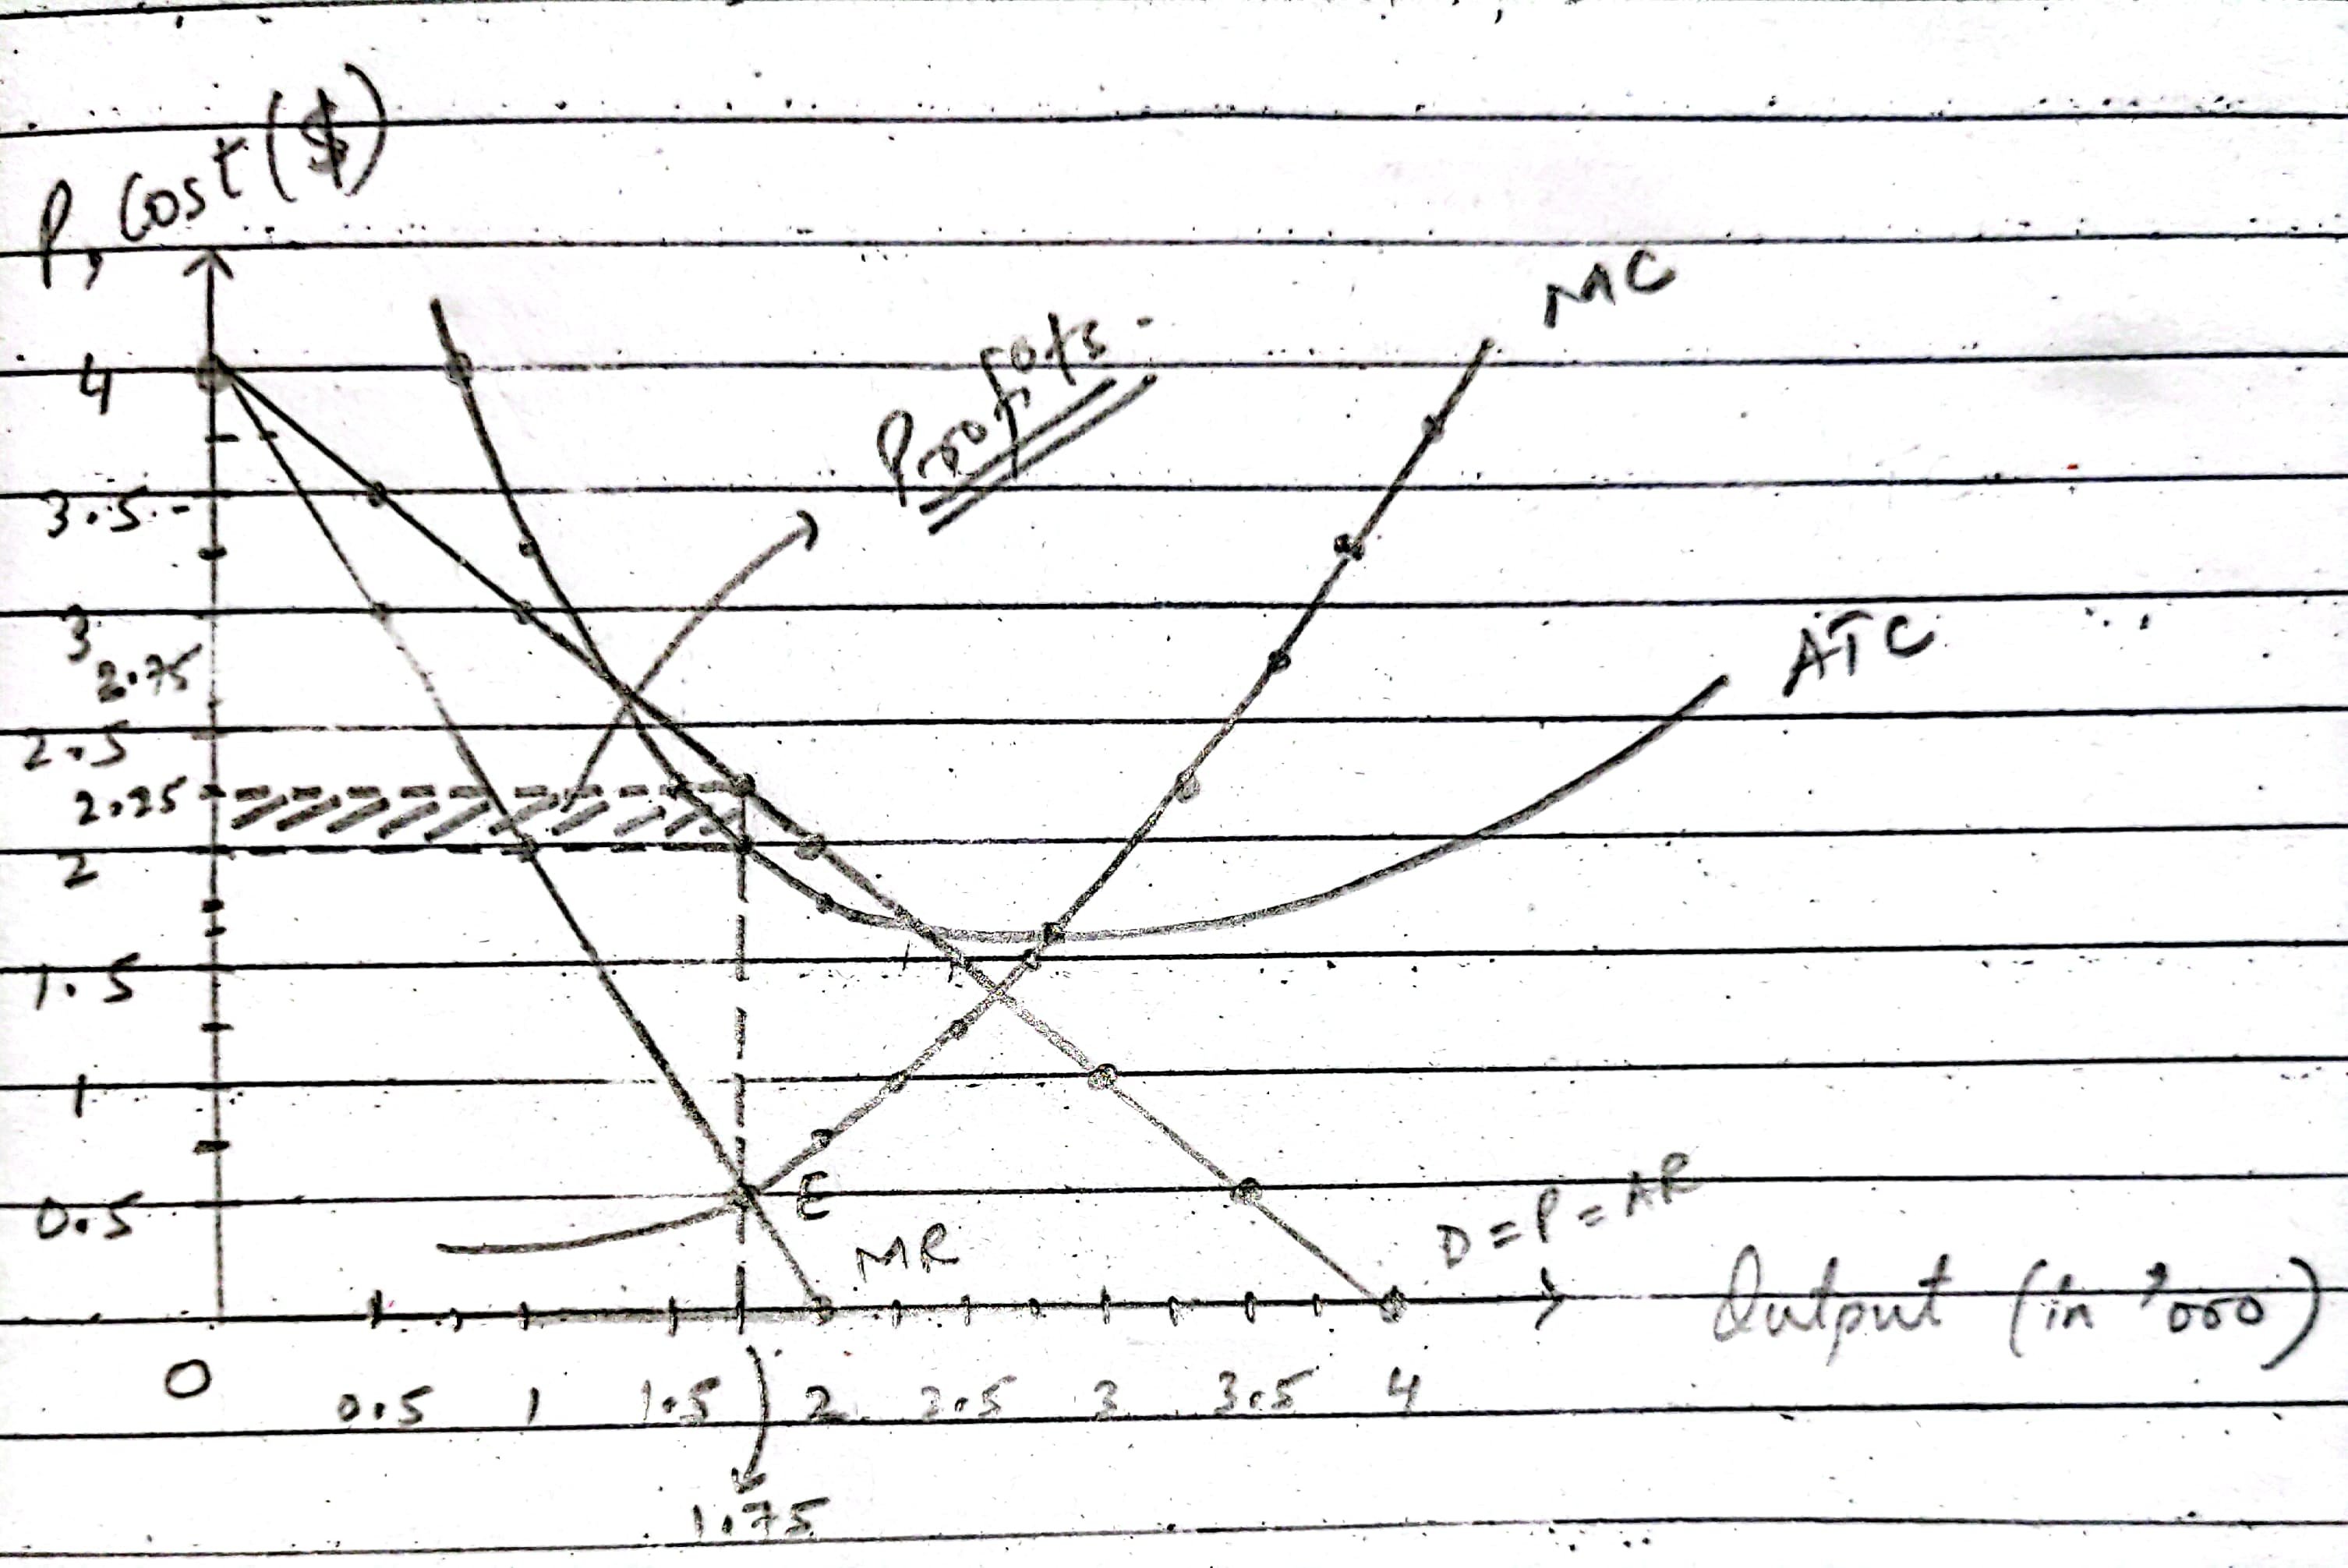 P, Cost ($)
MC
Profits.
4
3.5
3
ATC
2.75
2.5
2.25
2
1.5
1
0.5
E
MR
D = P = AR
Output (in '000)
0
0.5 1 1.5 2 2.5 3 3.5 4
1.75